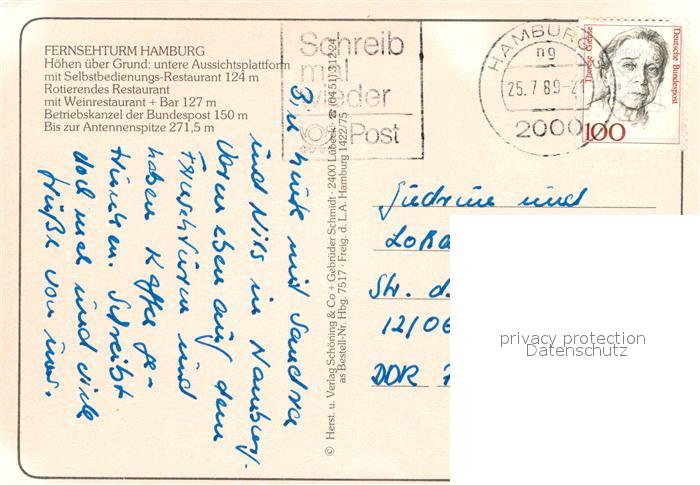 FERNSEHTURM HAMBURG
Höhen über Grund: untere Aussichtsplattform
mit Selbstbedienungs-Restaurant 124 m
Rotierendes Restaurant
mit Weinrestaurant + Bar 127 m
Betriebskanzel der Bundespost 150 m
Bis zur Antennenspitze 271,5 m
Schreib
mal
wieder
Post
HAMBURG
ng
25.7.89
2000
Therese Giehse
Deutsche Bundespost
100
Bin heute mit Sandra
und Nils in Hamburg.
Waren eben auf dem
Fernsehturm und
haben Kaffee ge-
trunken. Schreibt
doch mal und viele
Grüße von
© Herst. u. Verlag Schöning & Co + Gebrüder Schmidt · 2400 Lübeck ☎ (0451) 31224
as Bestell-Nr. Hbg. 7517 · Freig. d. L.A. Hamburg 1422/75
und
Str. d.
12/06
DDR
privacy protection
Datenschutz